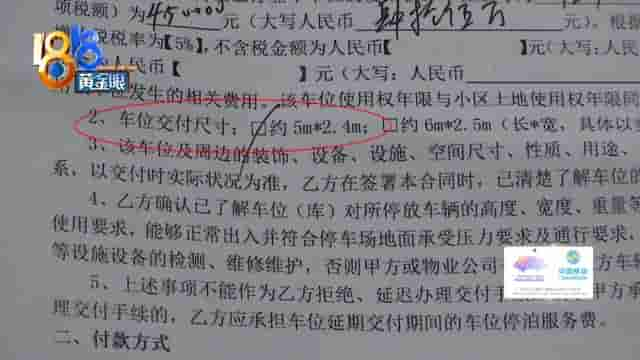 项税额）为450000元（大写人民币 肆拾伍万
税税率为【5%】，不含税金额为人民币【 】元（大写：人民币
人民币【 】元（大写：人民币
发生的相关费用，该车位使用权年限与小区土地使用权年限同
2、车位交付尺寸：□约 5m*2.4m；□约 6m*2.5m（长*宽，具体以
3、该车位及周边的装饰、设备、设施、空间尺寸、性质、用途、
系，以交付时实际状况为准，乙方在签署本合同时，已清楚了解车位的
4、乙方确认已了解车位（库）对所停放车辆的高度、宽度、重量等
使用要求，能够正常出入并符合停车场地面承受压力要求及通行要求，
等设施设备的检测、维修维护，否则甲方或物业公司
方车辆
5、上述事项不能作为乙方拒绝、延迟办理交付手
甲方承
理交付手续的，乙方应承担车位延期交付期间的车位停泊服务费。
二、付款方式
1818
黄金眼
中国移动